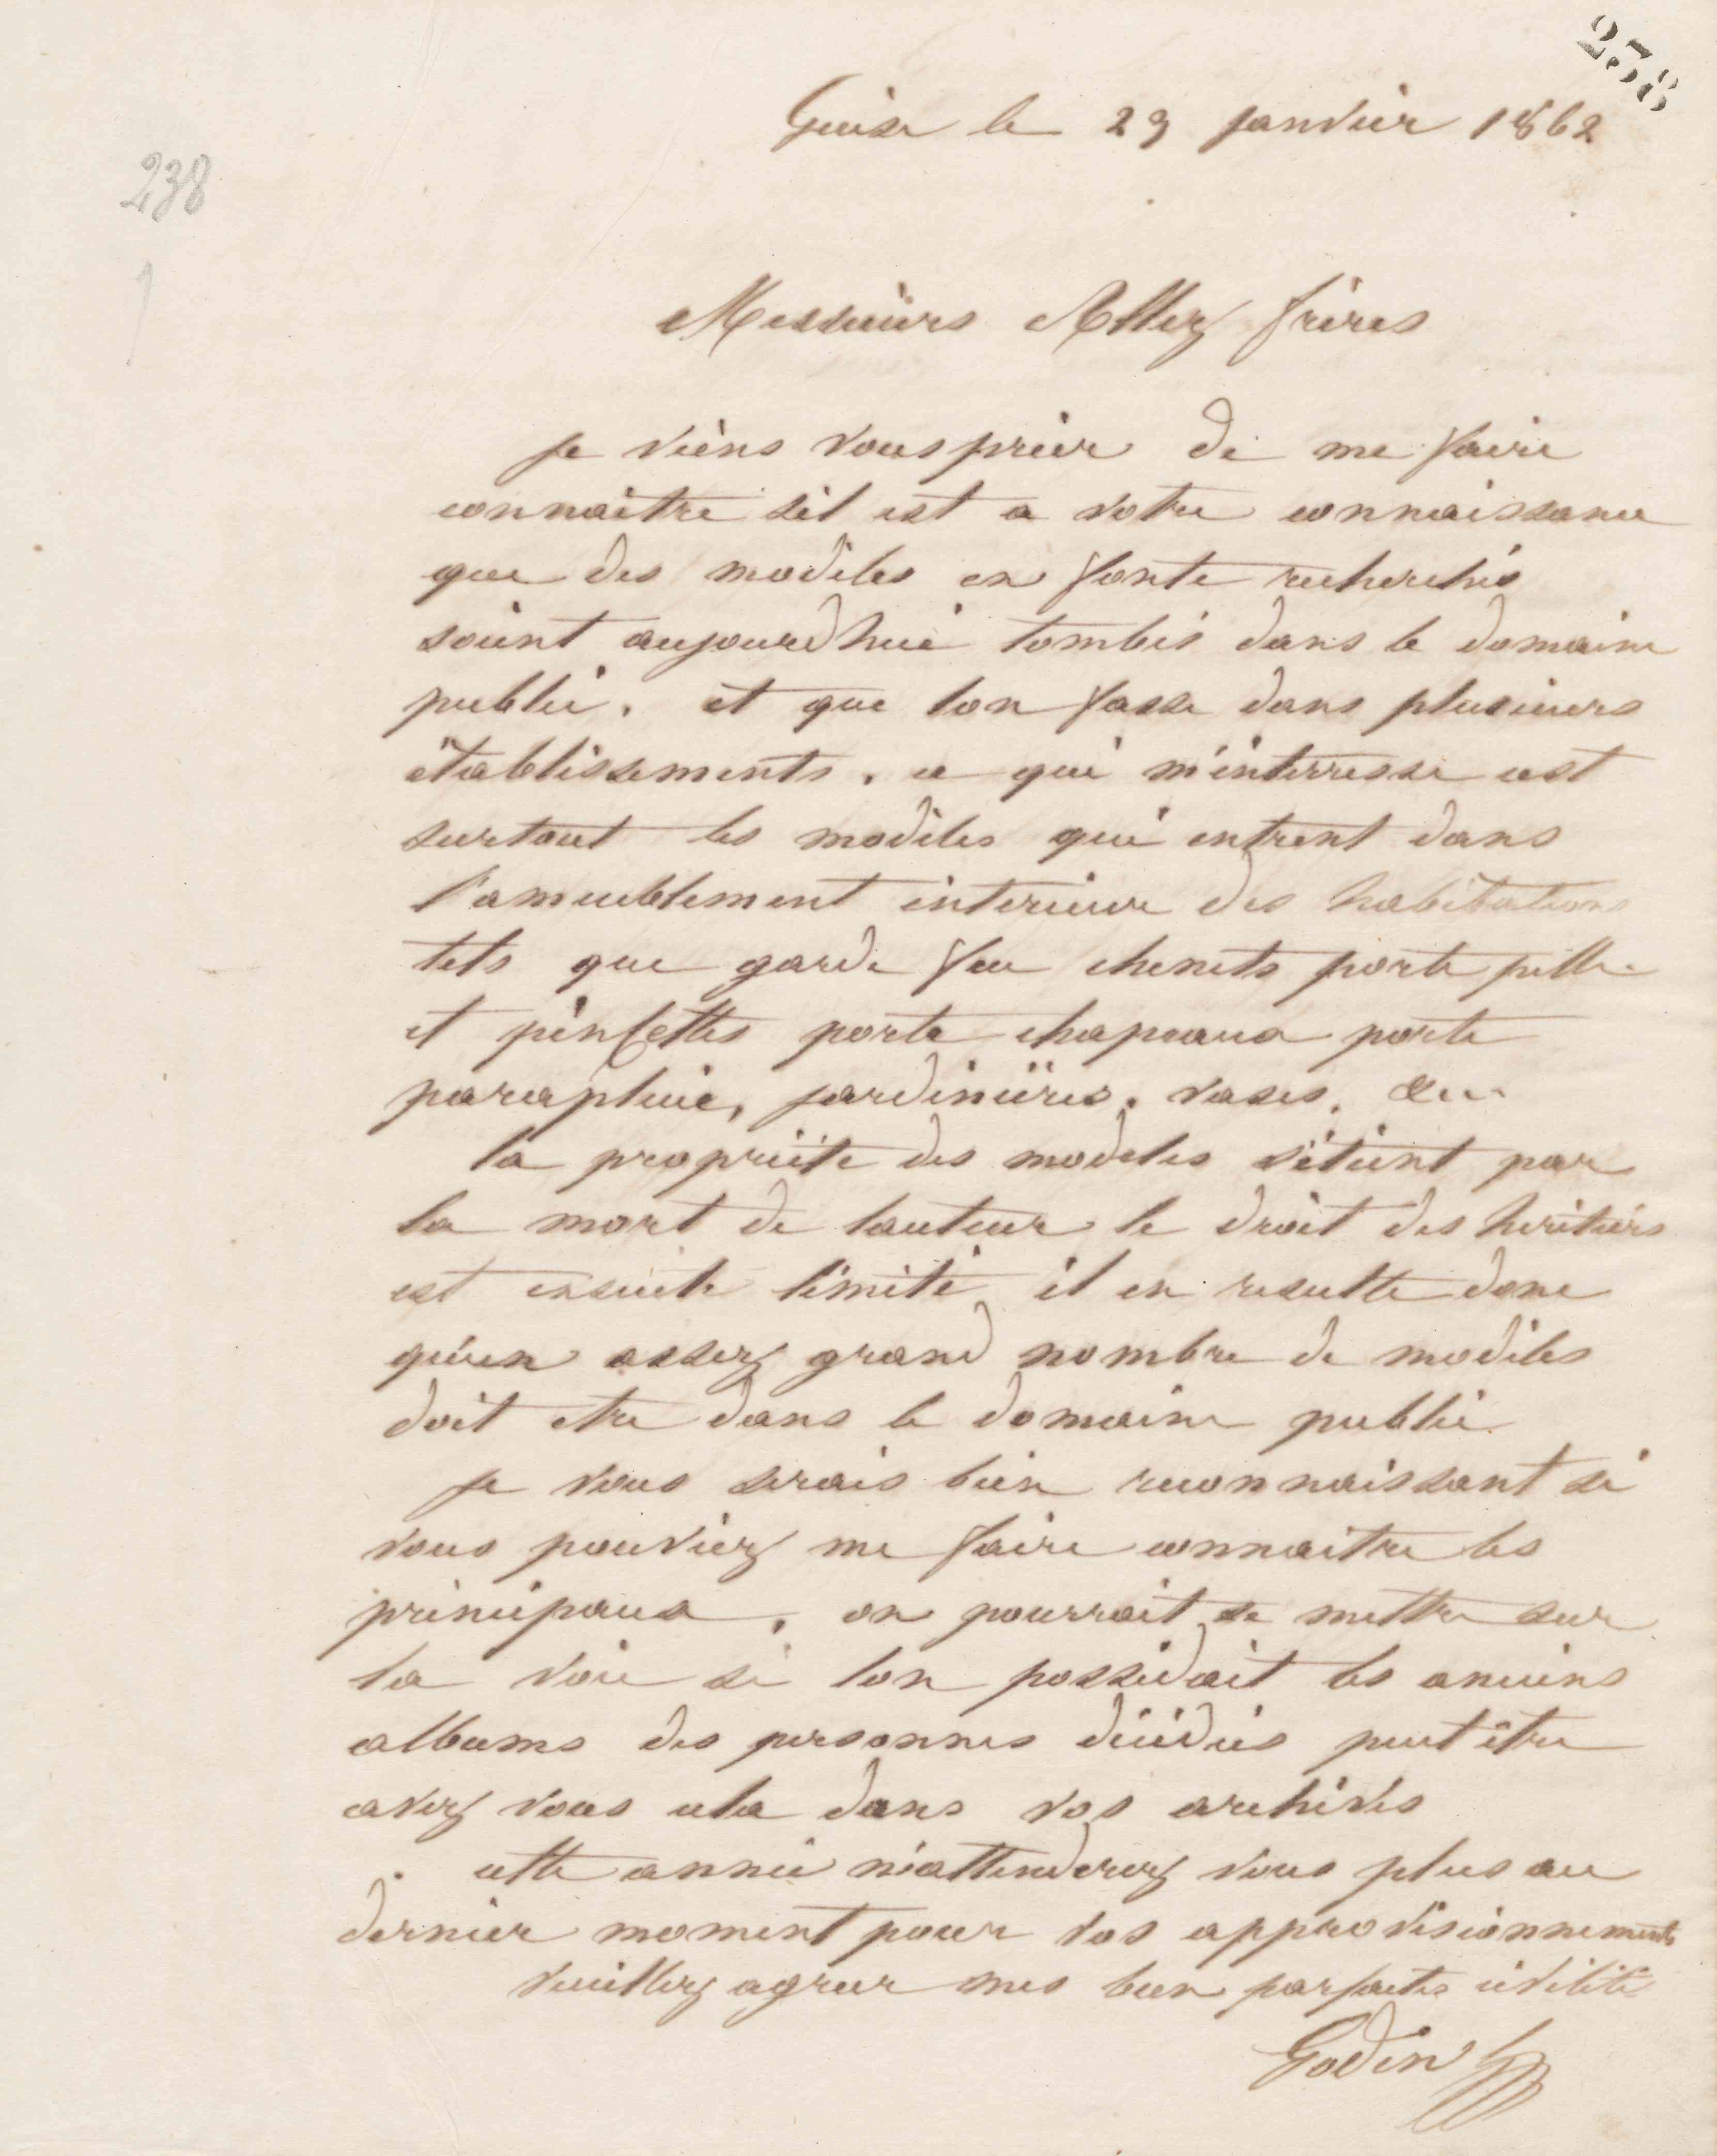 238
Guise le 29 janvier 1862
238
1
Messieurs Allez frères
je viens vous prier de me faire
connaitre sil est a votre connaissance
que des modèles en fonte recherchés
soient aujourdhui tombés dans le domaine
public. et que lon fasse dans plusieurs
établissements. ce qui m'interresse cest
surtout les modèles qui entrent dans
l'ameublement interieur des habitations
tels que garde feu chenets porte pelle
et pincettes porte chapeaux porte
parapluie, jardinières. vases. &c
la propriété des modeles s'étient par
la mort de lauteur le droit des heritiers
est ensuite limité il en resulte donc
qu'un assez grand nombre de modèles
doit etre dans le domaine public
je vous serais bien reconnaissant si
vous pouviez me faire connaitre les
principaux, on pourrait se mettre sur
la voie si lon possédait les anciens
albums des personnes décédées peut être
avez vous cela dans vos archives
cette année n'attenderez vous plus au
dernier moment pour vos approvisionnements
veuillez agreer mes bien parfaites civilités
Godin